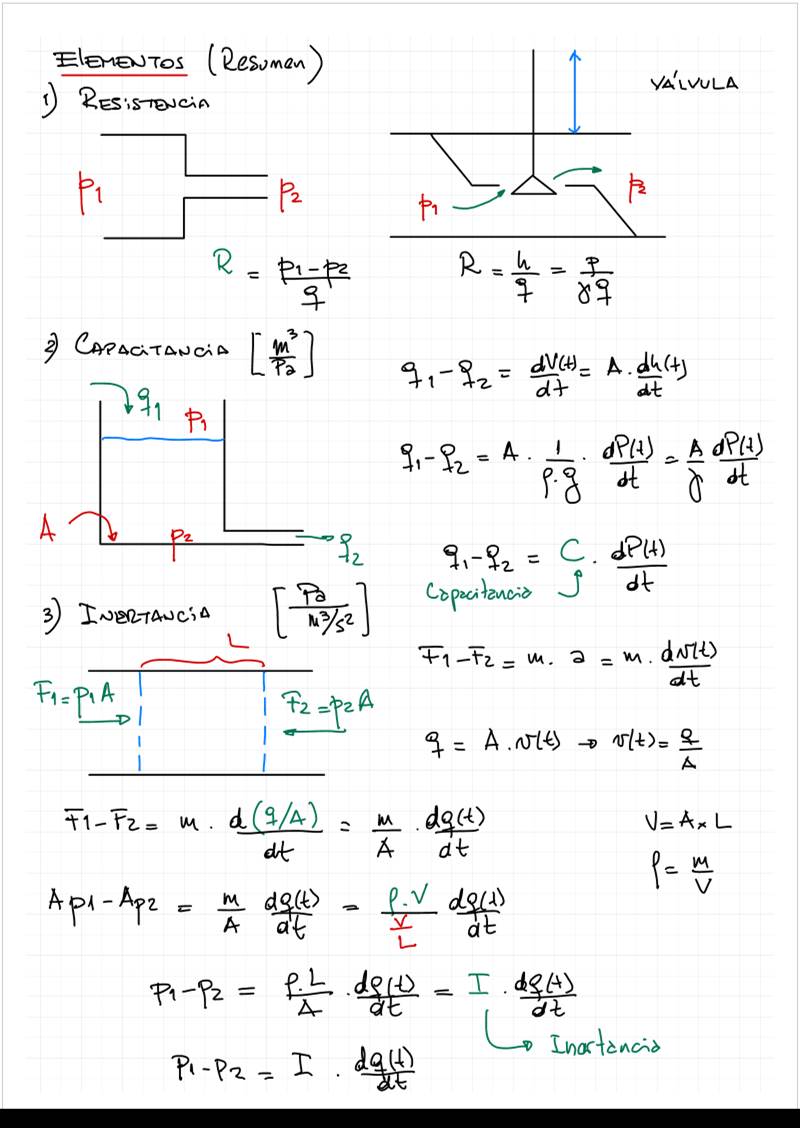 ELEMENTOS (Resumen)
1) RESISTENCIA
VÁLVULA
p1
p2
p1
p2
R = (p1-p2)/q
R = h/q = p/(γq)
2) CAPACITANCIA [m³/Pa]
q1-q2 = dV(t)/dt = A . dh(t)/dt
q1
p1
q1-q2 = A . 1/(ρ.g) . dP(t)/dt = A/γ dP(t)/dt
A
p2
q2
q1-q2 = C . dP(t)/dt
Capacitancia
3) INERTANCIA [Pa/(m³/s²)]
L
F1-F2 = m. a = m. dv(t)/dt
F1=p1A
F2=p2A
q = A.v(t) → v(t)= q/A
F1-F2 = m . d(q/A)/dt = m/A . dq(t)/dt
V=A×L
ρ= m/V
Ap1-Ap2 = m/A dq(t)/dt = ρ.V/(V/L) dq(t)/dt
p1-p2 = ρ.L/A . dq(t)/dt = I . dq(t)/dt
Inertancia
p1-p2 = I . dq(t)/dt